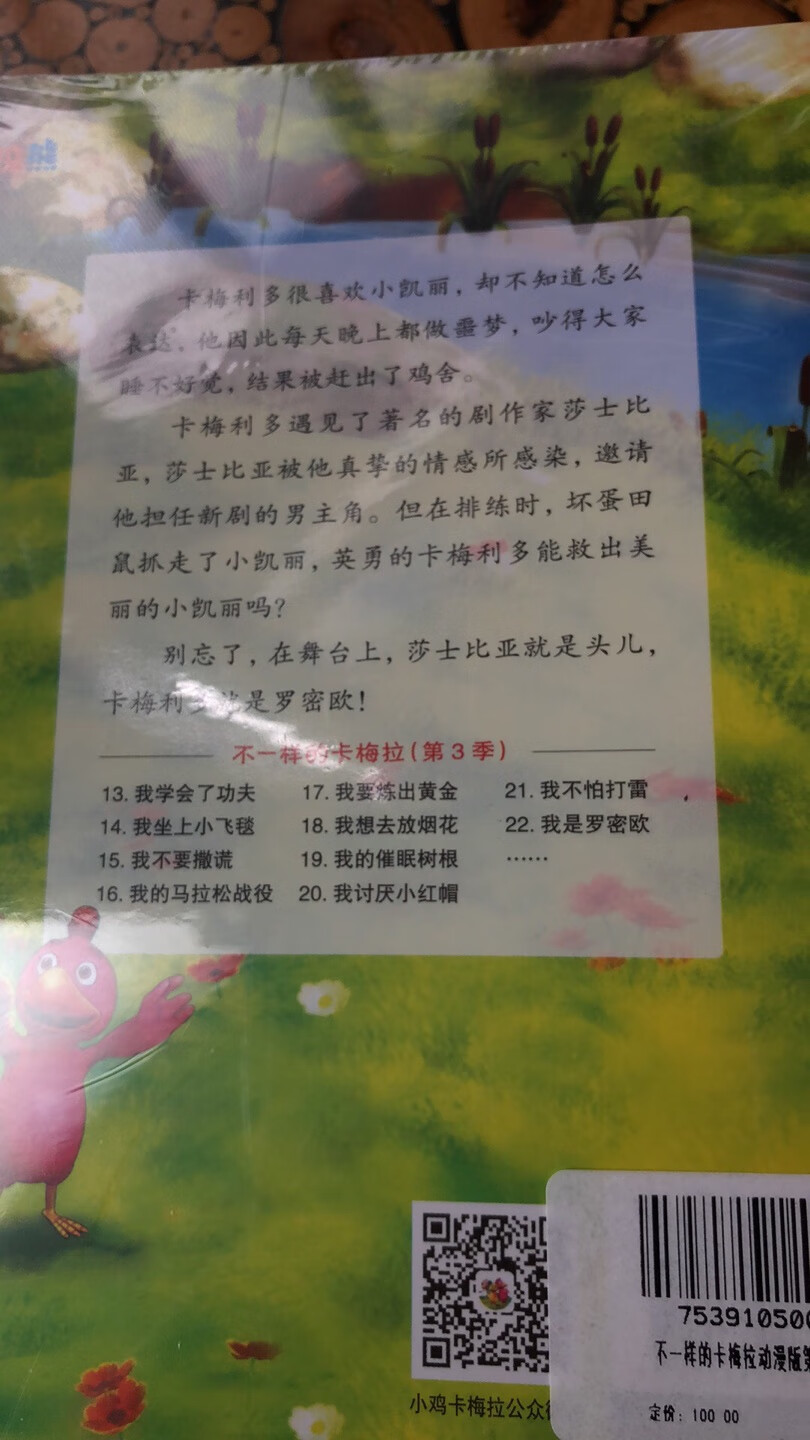 熊
卡梅利多很喜欢小凯丽，却不知道怎么
表达，他因此每天晚上都做噩梦，吵得大家
睡不好觉，结果被赶出了鸡舍。
卡梅利多遇见了著名的剧作家莎士比
亚，莎士比亚被他真挚的情感所感染，邀请
他担任新剧的男主角。但在排练时，坏蛋田
鼠抓走了小凯丽，英勇的卡梅利多能救出美
丽的小凯丽吗？
别忘了，在舞台上，莎士比亚就是头儿，
卡梅利多就是罗密欧！
不一样的卡梅拉（第3季）
13. 我学会了功夫 17. 我要炼出黄金 21. 我不怕打雷
14. 我坐上小飞毯 18. 我想去放烟花 22. 我是罗密欧
15. 我不要撒谎 19. 我的催眠树根 ……
16. 我的马拉松战役 20. 我讨厌小红帽
753910500
不一样的卡梅拉动漫版第
小鸡卡梅拉公众
定价：100 00